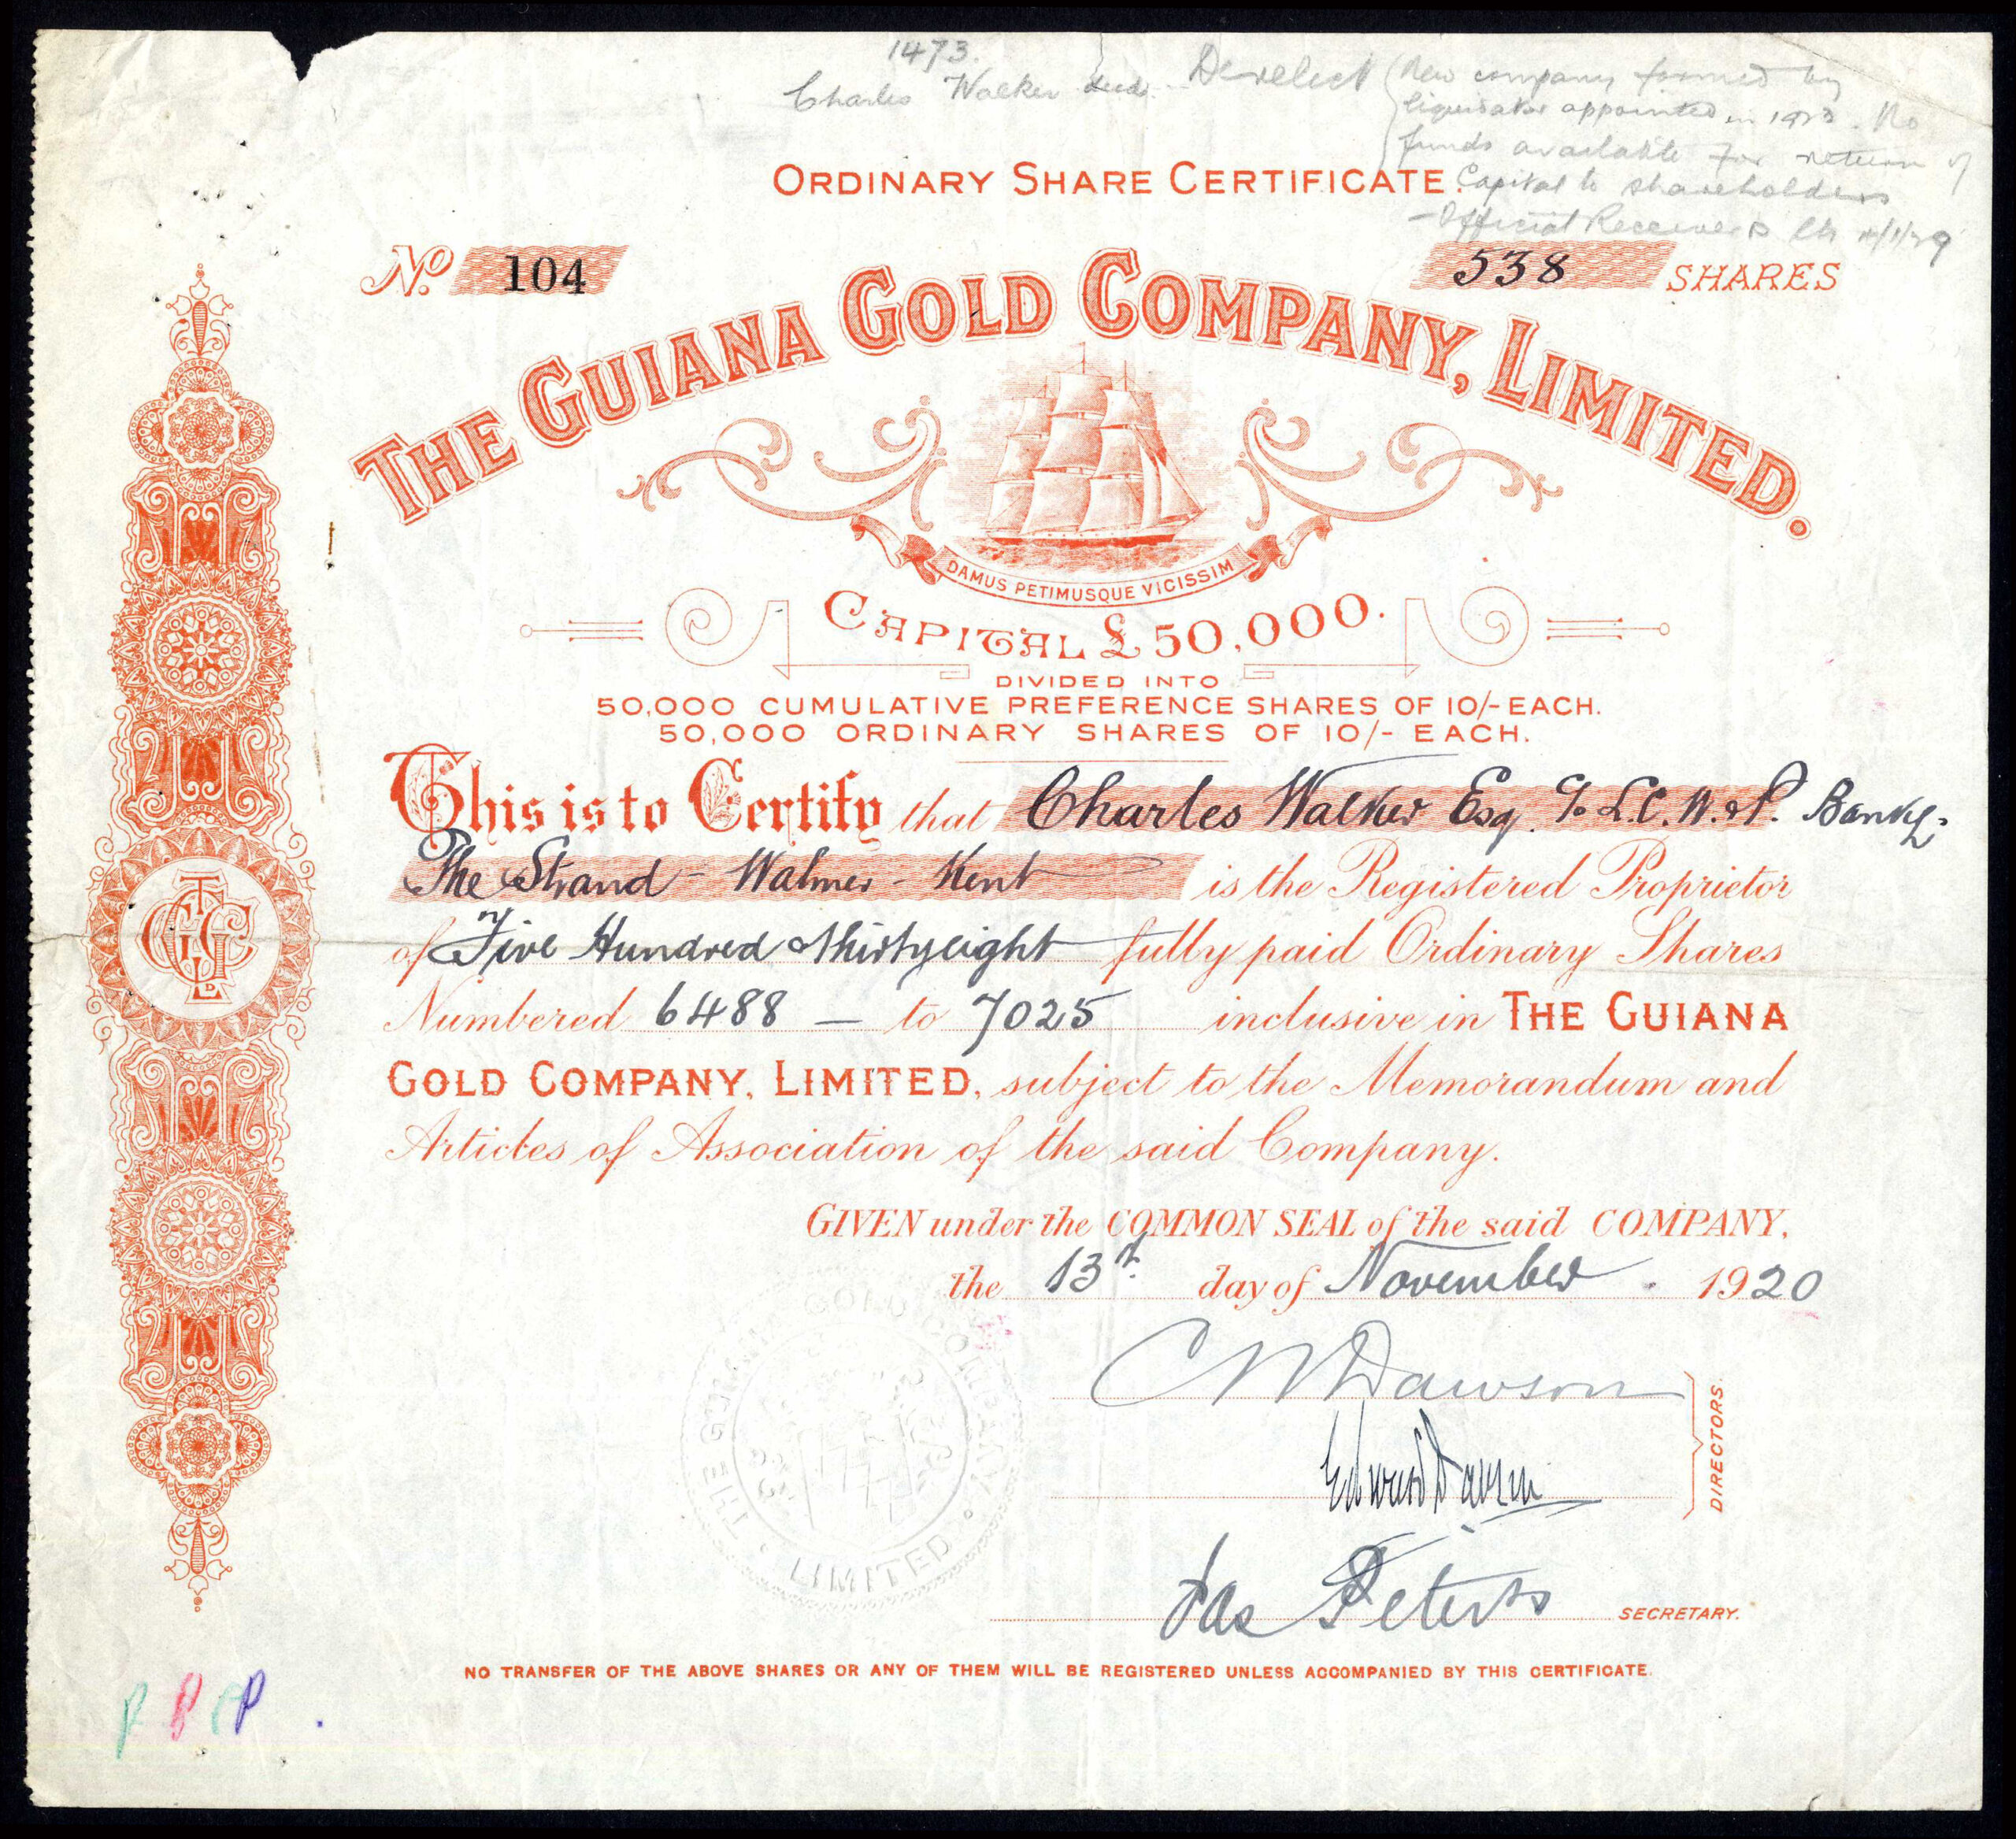 1473.
Charles Walker decd. Derelict (New company formed by
liquidator appointed in 1923. No
funds available for return of
Capital to shareholders
- Official Receivers
ORDINARY SHARE CERTIFICATE.
No. 104
538 SHARES
THE GUIANA GOLD COMPANY, LIMITED.
DAMUS PETIMUSQUE VICISSIM
CAPITAL £50,000.
DIVIDED INTO
50,000 CUMULATIVE PREFERENCE SHARES OF 10/- EACH.
50,000 ORDINARY SHARES OF 10/- EACH.
This is to Certify that Charles Walker Esq. c/o L.C.W. & P. Bank Ld.
The Strand - Walmer - Kent is the Registered Proprietor
of Five Hundred & Thirtyeight fully paid Ordinary Shares
Numbered 6488 — to 7025 inclusive in THE GUIANA
GOLD COMPANY, LIMITED, subject to the Memorandum and
Articles of Association of the said Company.
GIVEN under the COMMON SEAL of the said COMPANY,
the 13th day of November. 1920
C W Dawson
Edward Davson
DIRECTORS.
Jas Peters SECRETARY.
THE GUIANA GOLD COMPANY LIMITED
NO TRANSFER OF THE ABOVE SHARES OR ANY OF THEM WILL BE REGISTERED UNLESS ACCOMPANIED BY THIS CERTIFICATE.